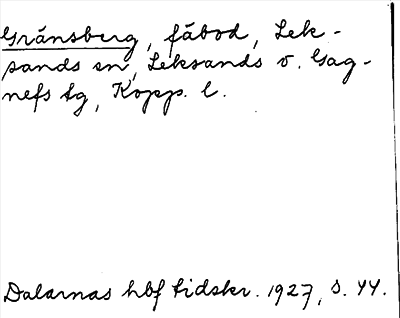 Gränsberg, fäbod, Lek-
sands sn, Leksands o. Gag-
nefs tg, Kopp. l.
Dalarnas hbf tidskr. 1927, s. 44.